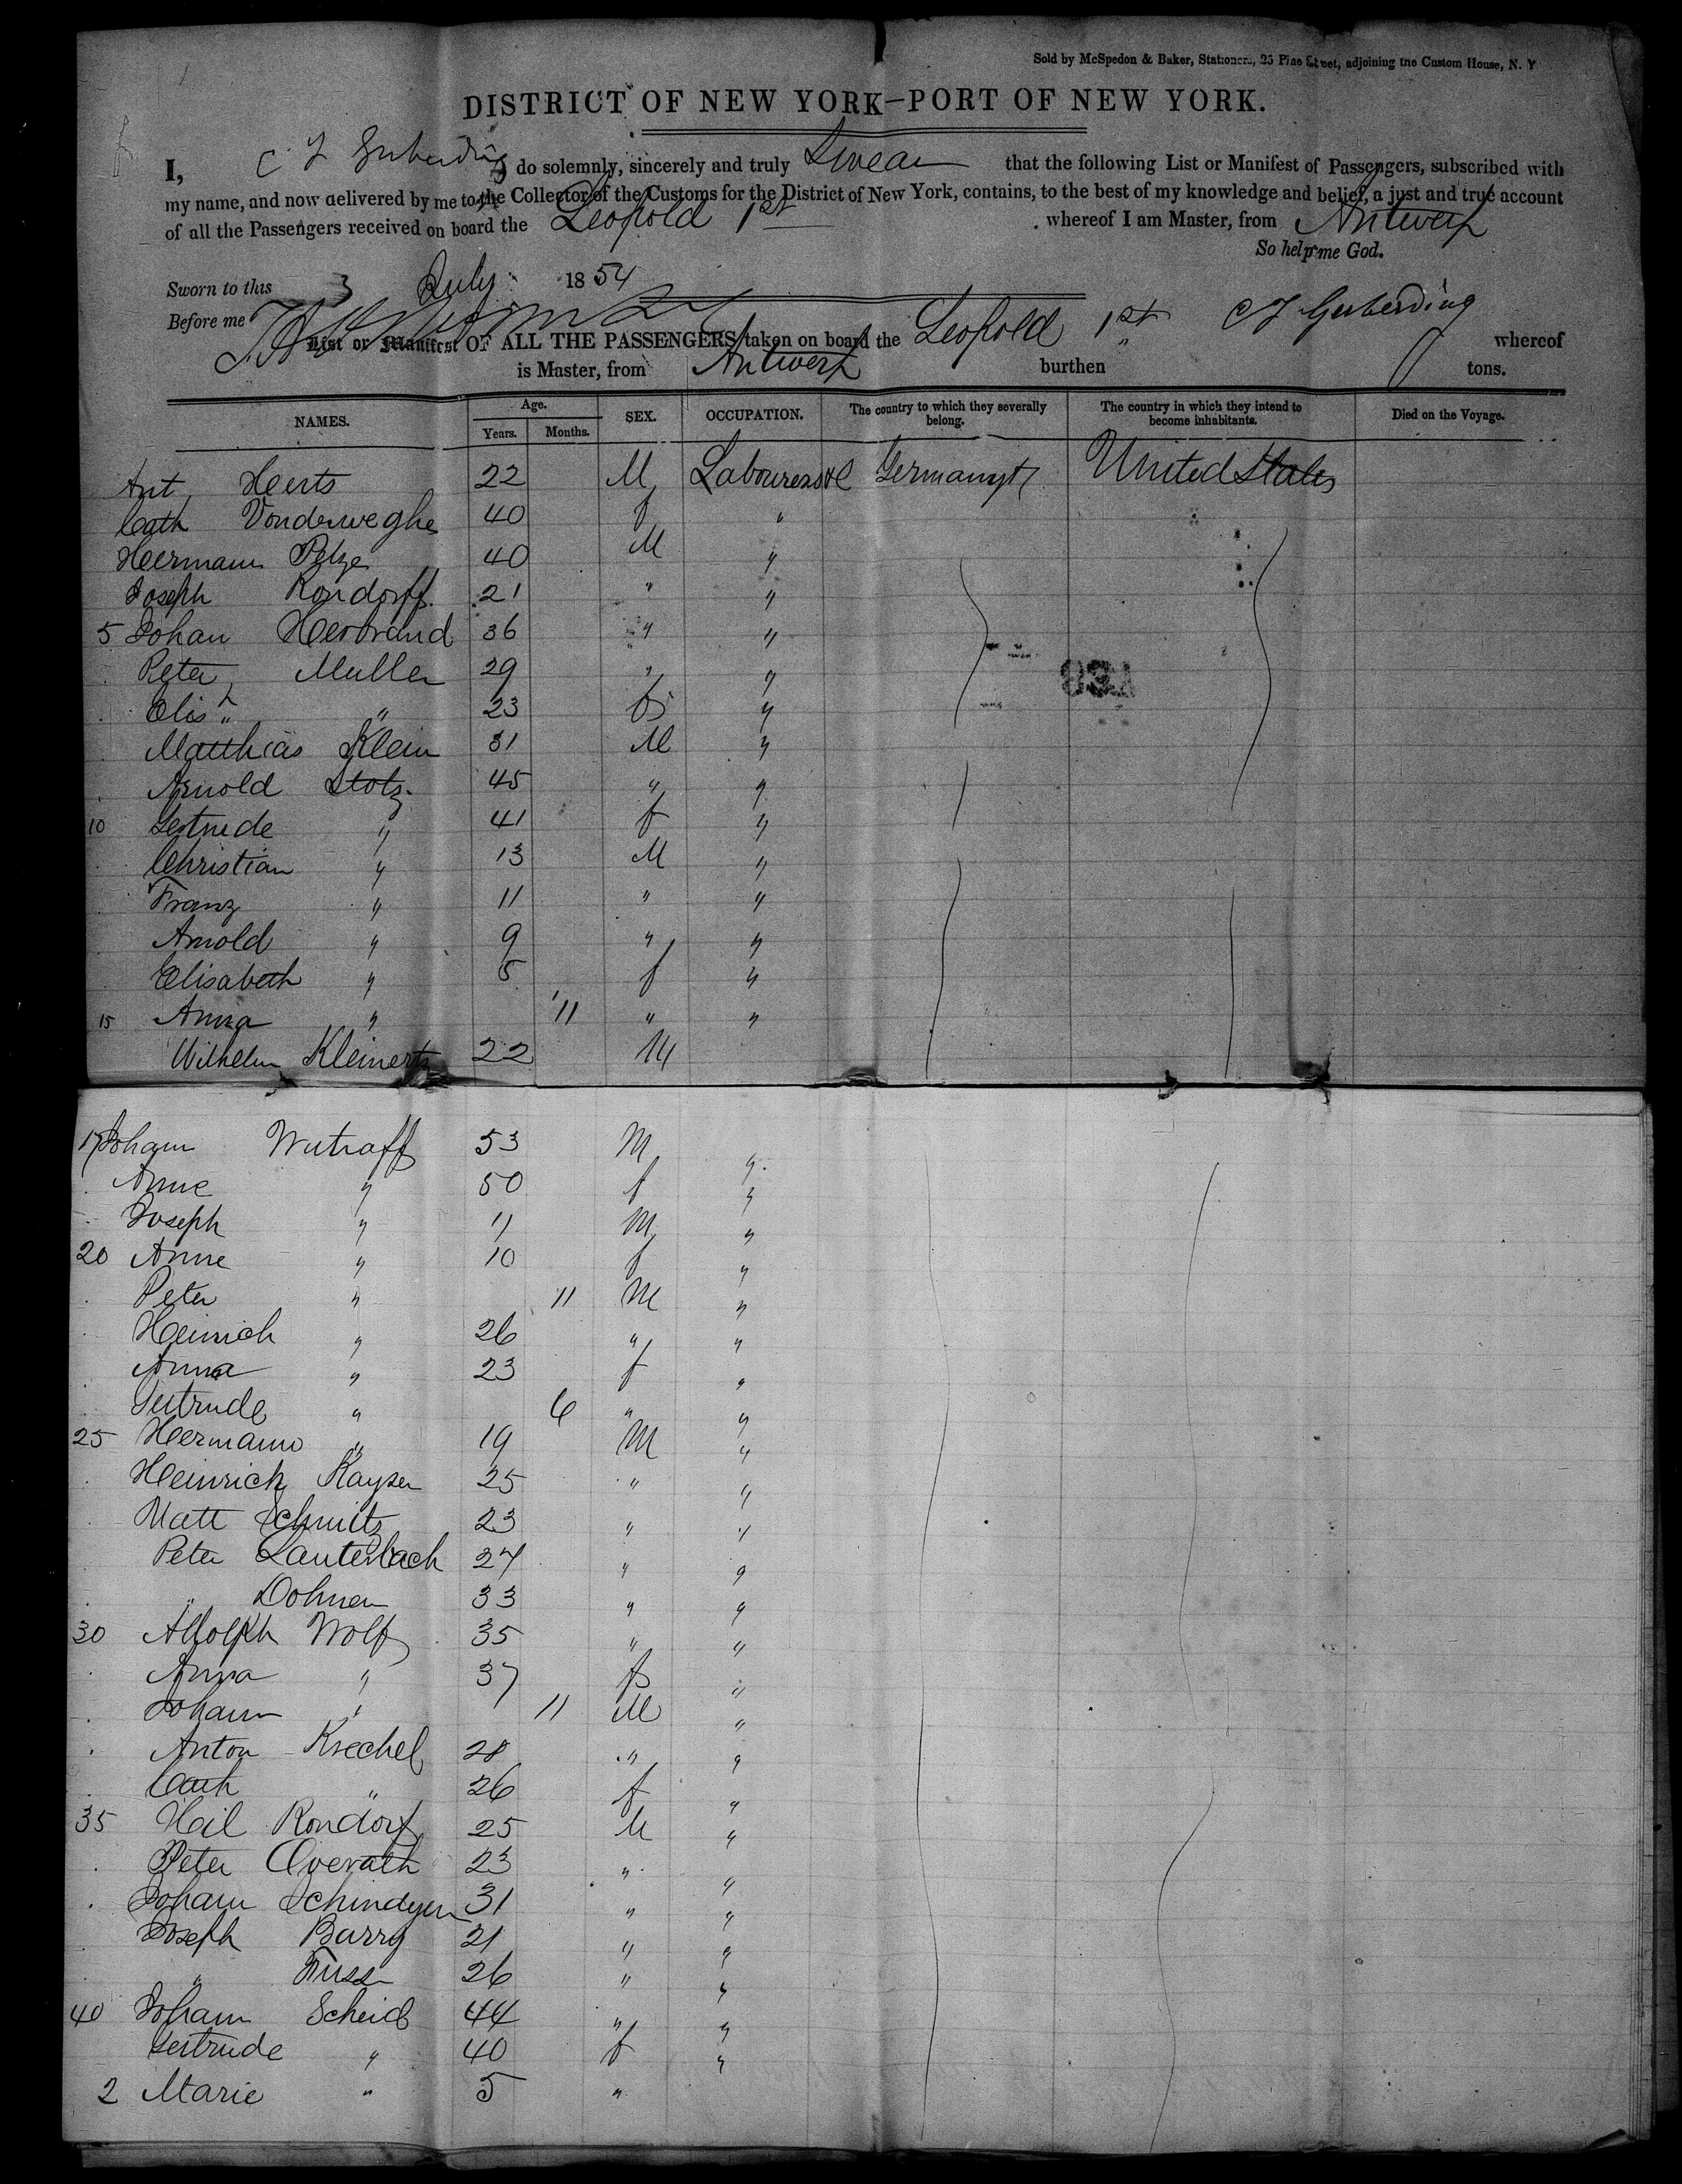 Sold by McSpedon & Baker, Stationers, 25 Pine Street, adjoining the Custom House, N. Y
DISTRICT OF NEW YORK—PORT OF NEW YORK.
I, C F Gerberding do solemnly, sincerely and truly Swear that the following List or Manifest of Passengers, subscribed with
my name, and now delivered by me to the Collector of the Customs for the District of New York, contains, to the best of my knowledge and belief, a just and true account
of all the Passengers received on board the Leopold 1st whereof I am Master, from Antwerp
So help me God.
Sworn to this 3 July 1854
Before me
List or Manifest OF ALL THE PASSENGERS taken on board the Leopold 1st C F Gerberding whereof
is Master, from Antwerp burthen tons.
NAMES. Age. Years. Months. SEX. OCCUPATION. The country to which they severally belong. The country in which they intend to become inhabitants. Died on the Voyage.
Ant Heerts 22 M Labourers Germany United States
Cath Vonderweghe 40 f "
Heermann Petze 40 M "
Joseph Rondorff 21 " "
5 Johan Herbrand 36 " "
Peter Muller 29 " "
Elis " 23 f "
Matthias Klein 31 M "
Arnold Stotz 45 " "
10 Gertrude " 41 f "
Christian " 13 M "
Franz " 11 " "
Arnold " 9 " "
Elisabeth " 5 f "
15 Anna " 11 " "
Wilhelm Kleinertz 22 M
17 Johann Wutraff 53 M "
Anne " 50 f "
Joseph " 11 M "
20 Anne " 10 f "
Peter " 11 M "
Heinrich " 26 " "
Anna " 23 f "
Gertrude " 6 " "
25 Hermann " 19 M "
Heinrich Kayser 25 " "
Matt Schmitz 23 " "
Peter Lauterbach 27 " "
" Dohmen 33 " "
30 Adolph Wolf 35 " "
Anna " 37 f "
Johann " 11 M "
Anton Krechel 28 " "
Cath " 26 f "
35 Rondorf 25 M "
Peter Overath 23 " "
Johann 31 " "
Joseph Barry 21 " "
" Fuss 26 " "
40 Johann Scheid 44 " "
Gertrude " 40 f "
2 Marie " 5 "